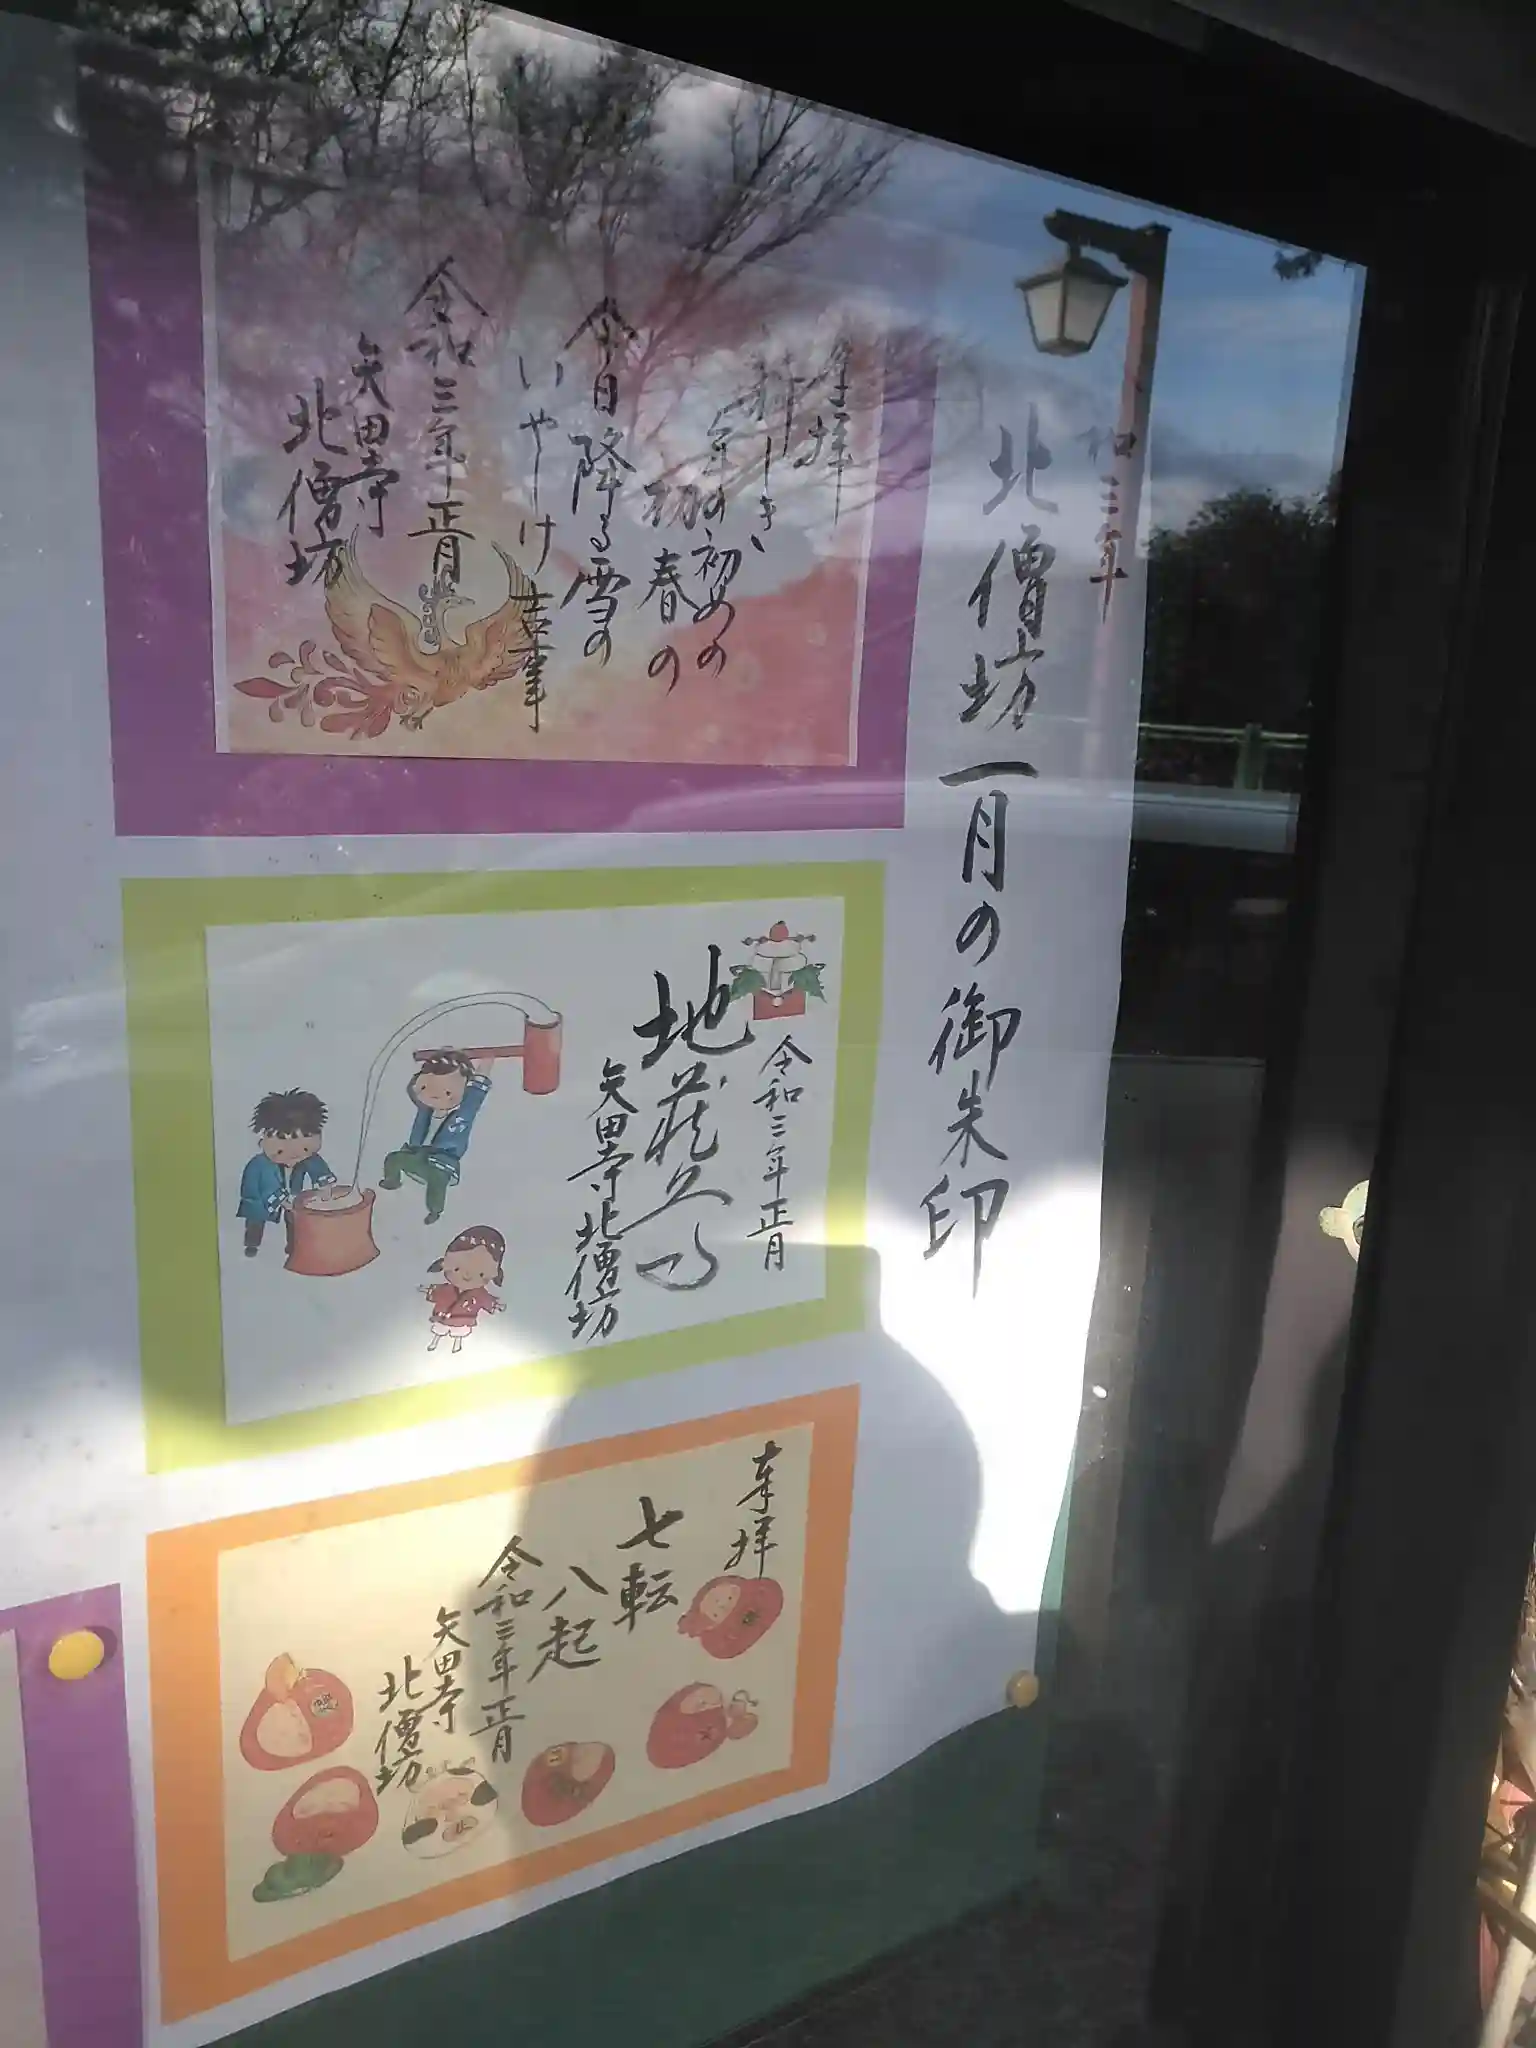 令和三年
北僧坊一月の御朱印
奉拝
新しき
年の初めの
初春の
今日降る雪の
いやしけ吉事
令和三年正月
矢田寺
北僧坊
令和三年正月
地蔵
矢田寺北僧坊
奉拝
七転
八起
令和三年正月
矢田寺
北僧坊